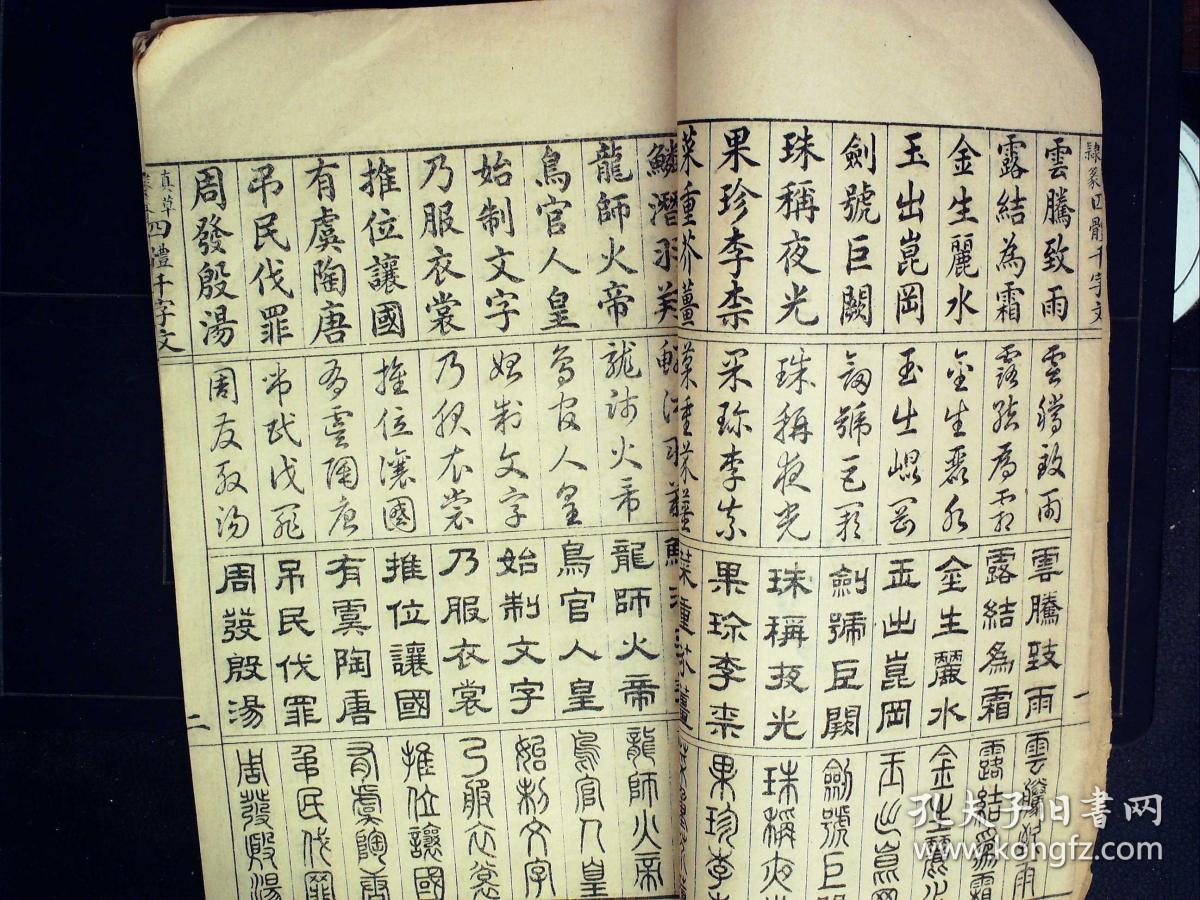 隸篆四體千字文
一
雲騰致雨
露結為霜
金生麗水
玉出崑岡
劍號巨闕
珠稱夜光
果珍李柰
菜重芥薑
雲騰致雨
露結為霜
金生麗水
玉出崑岡
劍號巨闕
珠稱夜光
果珍李柰
菜重芥薑
雲騰致雨
露結為霜
金生麗水
玉出崑岡
劍號巨闕
珠稱夜光
果珍李柰
菜重芥薑
雲騰致雨
露結為霜
金生麗水
玉出崑岡
劍號巨
珠稱夜光
果珍李
鱗潛羽
龍師火帝
鳥官人皇
始制文字
乃服衣裳
推位讓國
有虞陶唐
弔民伐罪
周發殷湯
龍師火帝
鳥官人皇
始制文字
乃服衣裳
推位讓國
有虞陶唐
弔民伐罪
周發殷湯
龍師火帝
鳥官人皇
始制文字
乃服衣裳
推位讓國
有虞陶唐
弔民伐罪
周發殷湯
龍師火帝
鳥官人皇
始制文字
乃服衣裳
推位讓國
有虞陶唐
弔民伐罪
周發殷湯
真草
四體千字文
二
孔夫子旧书网
www.kongfz.com